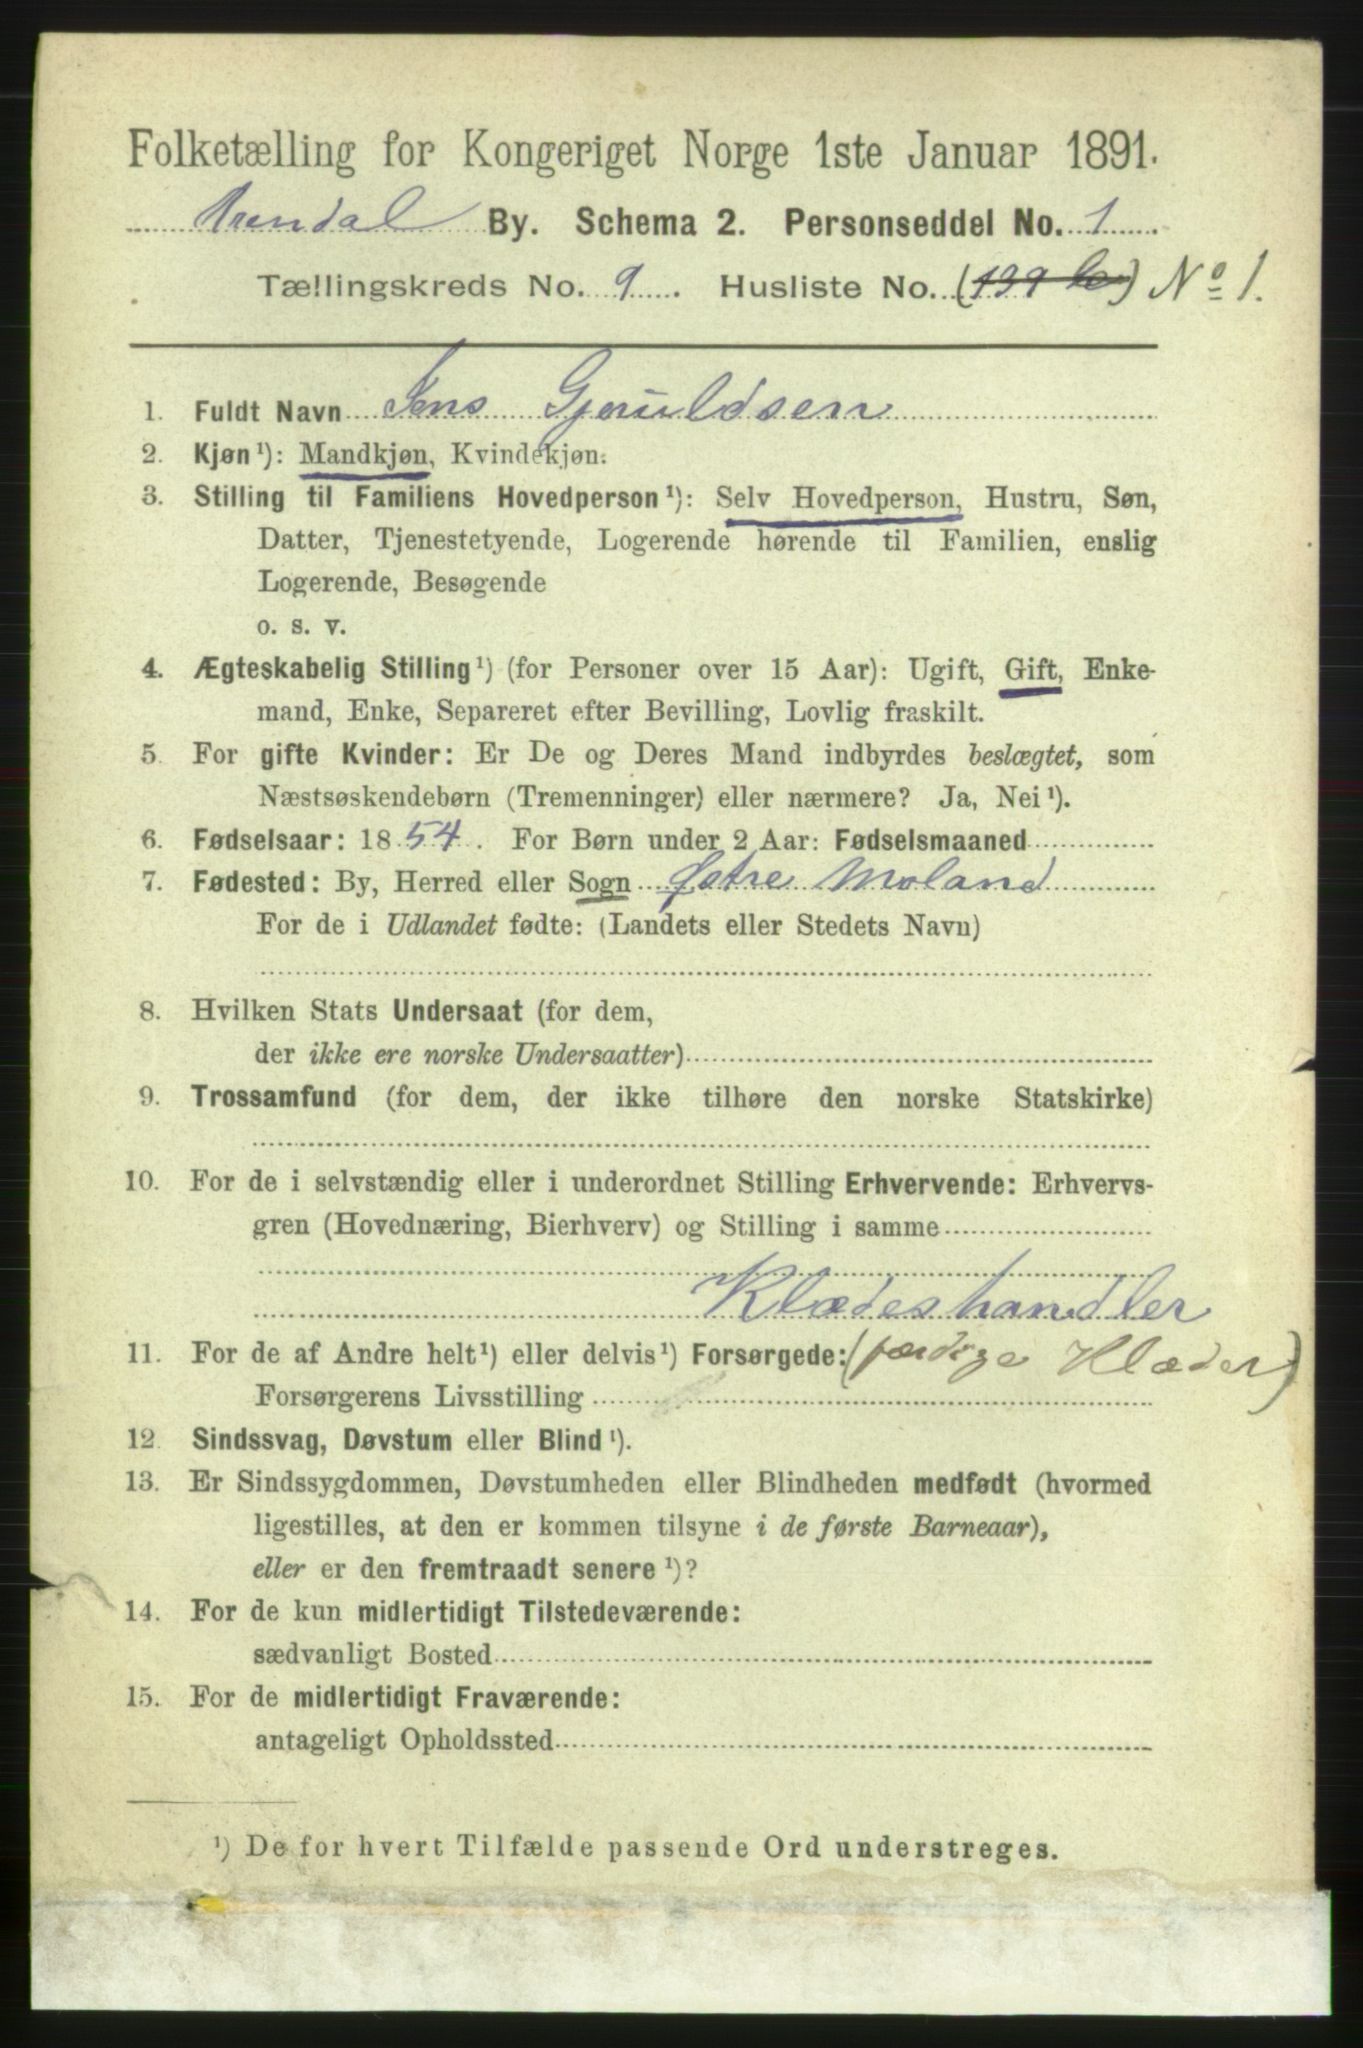 Folketælling for Kongeriget Norge 1ste Januar 1891.
Arendal By. Schema 2. Personseddel No. 1
Tællingskreds No. 9. Husliste No. (139 b) No 1.
1. Fuldt Navn Jens Gjeruldsen
2. Kjøn ¹): Mandkjøn, Kvindekjøn.
3. Stilling til Familiens Hovedperson ¹): Selv Hovedperson, Hustru, Søn,
Datter, Tjenestetyende, Logerende hørende til Familien, enslig
Logerende, Besøgende
o. s. v.
4. Ægteskabelig Stilling ¹) (for Personer over 15 Aar): Ugift, Gift, Enke-
mand, Enke, Separeret efter Bevilling, Lovlig fraskilt.
5. For gifte Kvinder: Er De og Deres Mand indbyrdes beslægtet, som
Næstsøskendebørn (Tremenninger) eller nærmere? Ja, Nei ¹).
6. Fødselsaar: 1854. For Børn under 2 Aar: Fødselsmaaned
7. Fødested: By, Herred eller Sogn Østre Moland
For de i Udlandet fødte: (Landets eller Stedets Navn)
8. Hvilken Stats Undersaat (for dem,
der ikke ere norske Undersaatter)
9. Trossamfund (for dem, der ikke tilhøre den norske Statskirke)
10. For de i selvstændig eller i underordnet Stilling Erhvervende: Erhvervs-
gren (Hovednæring, Bierhverv) og Stilling i samme
Klædeshandler
11. For de af Andre helt ¹) eller delvis ¹) Forsørgede: (færdige Klæder)
Forsørgerens Livsstilling
12. Sindssvag, Døvstum eller Blind ¹).
13. Er Sindssygdommen, Døvstumheden eller Blindheden medfødt (hvormed
ligestilles, at den er kommen tilsyne i de første Barneaar),
eller er den fremtraadt senere ¹)?
14. For de kun midlertidigt Tilstedeværende:
sædvanligt Bosted
15. For de midlertidigt Fraværende:
antageligt Opholdssted
¹) De for hvert Tilfælde passende Ord understreges.